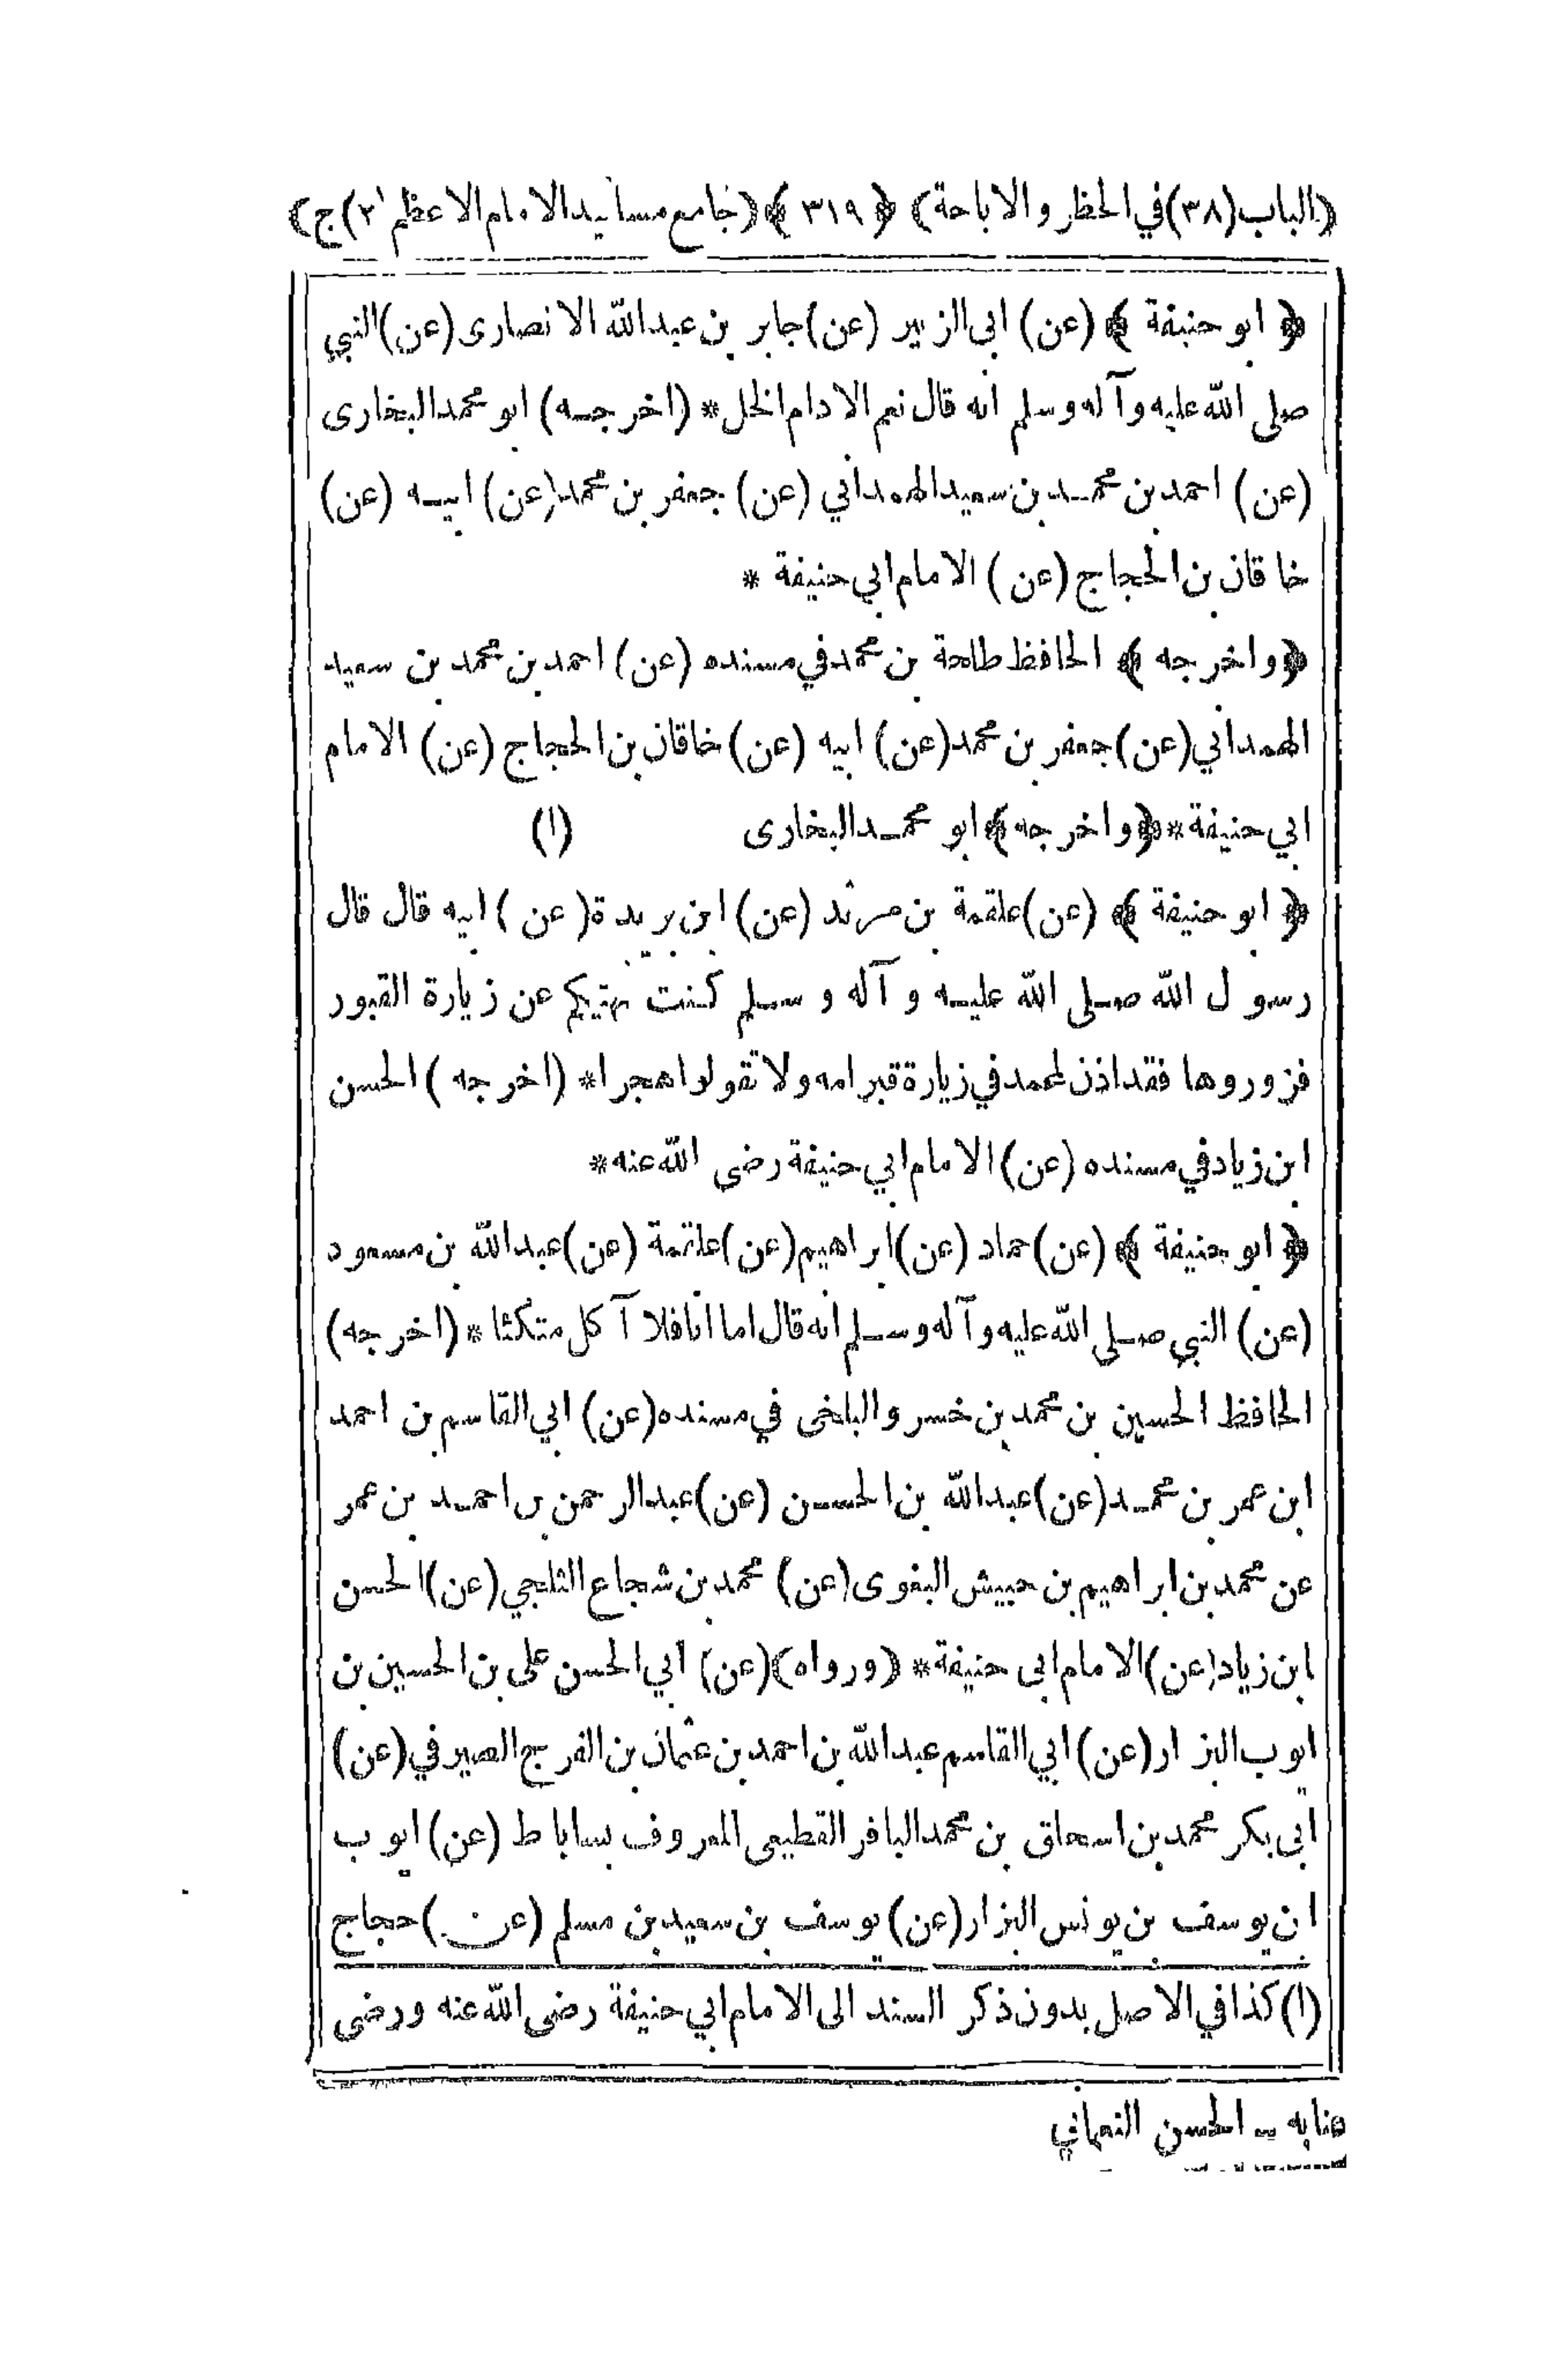 ﴿الباب(٣٨)في الحظر والاباحة﴾ ﴿ ٣١٩ ﴾ ﴿جامع مسانيد الامام الاعظم ٢)ج﴾
﴿ ابو حنيفة ﴾ (عن) ابي الزبير (عن) جابر بن عبد الله الانصارى (عن) النبي
صلى الله عليه وآله وسلم انه قال نعم الادام الخل * (اخرجه) ابو محمد البخارى
(عن) احمد بن محمد بن سعيد الهمداني (عن) جعفر بن محمد (عن) ابيه (عن)
خاقان بن الحجاج (عن) الامام ابي حنيفة *
﴿واخرجه ﴾ الحافظ طلحة بن محمد في مسنده (عن) احمد بن محمد بن سعيد
الهمداني (عن) جعفر بن محمد (عن) ابيه (عن) خاقان بن الحجاج (عن) الامام
ابي حنيفة * ﴿واخرجه﴾ ابو محمد البخارى (١)
﴿ ابو حنيفة ﴾ (عن) علقمة بن مرثد (عن) ابن بريدة (عن) ابيه قال قال
رسول الله صلى الله عليه وآله وسلم كنت نهيتكم عن زيارة القبور
فزوروها فقد اذن لمحمد في زيارة قبر امه ولا تقولوا هجرا * (اخرجه) الحسن
ابن زياد في مسنده (عن) الامام ابي حنيفة رضى الله عنه *
﴿ ابو حنيفة ﴾ (عن) حماد (عن) ابراهيم (عن) علقمة (عن) عبد الله بن مسعود
(عن) النبي صلى الله عليه وآله وسلم انه قال اما انا فلا آكل متكئا * (اخرجه)
الحافظ الحسين بن محمد بن خسرو البلخى في مسنده (عن) ابي القاسم بن احمد
ابن عمر بن محمد (عن) عبد الله بن الحسن (عن) عبد الرحمن بن احمد بن عمر
عن محمد بن ابراهيم بن حبيش البغوى (عن) محمد بن شجاع الثلجي (عن) الحسن
ابن زياد (عن) الامام ابى حنيفة * ﴿ورواه﴾ (عن) ابي الحسن على بن الحسين بن
ايوب البزار (عن) ابي القاسم عبد الله بن احمد بن عثمان بن الفرج الصيرفي (عن)
ابى بكر محمد بن اسحاق بن محمد البافر القطيعى المعروف بساباط (عن) ايوب
ابن يوسف بن يونس البزار (عن) يوسف بن سعيد بن مسلم (عن) حجاج
(١) كذا في الاصل بدون ذكر السند الى الامام ابي حنيفة رضى الله عنه ورضى
عنا به - الحسن النعماني